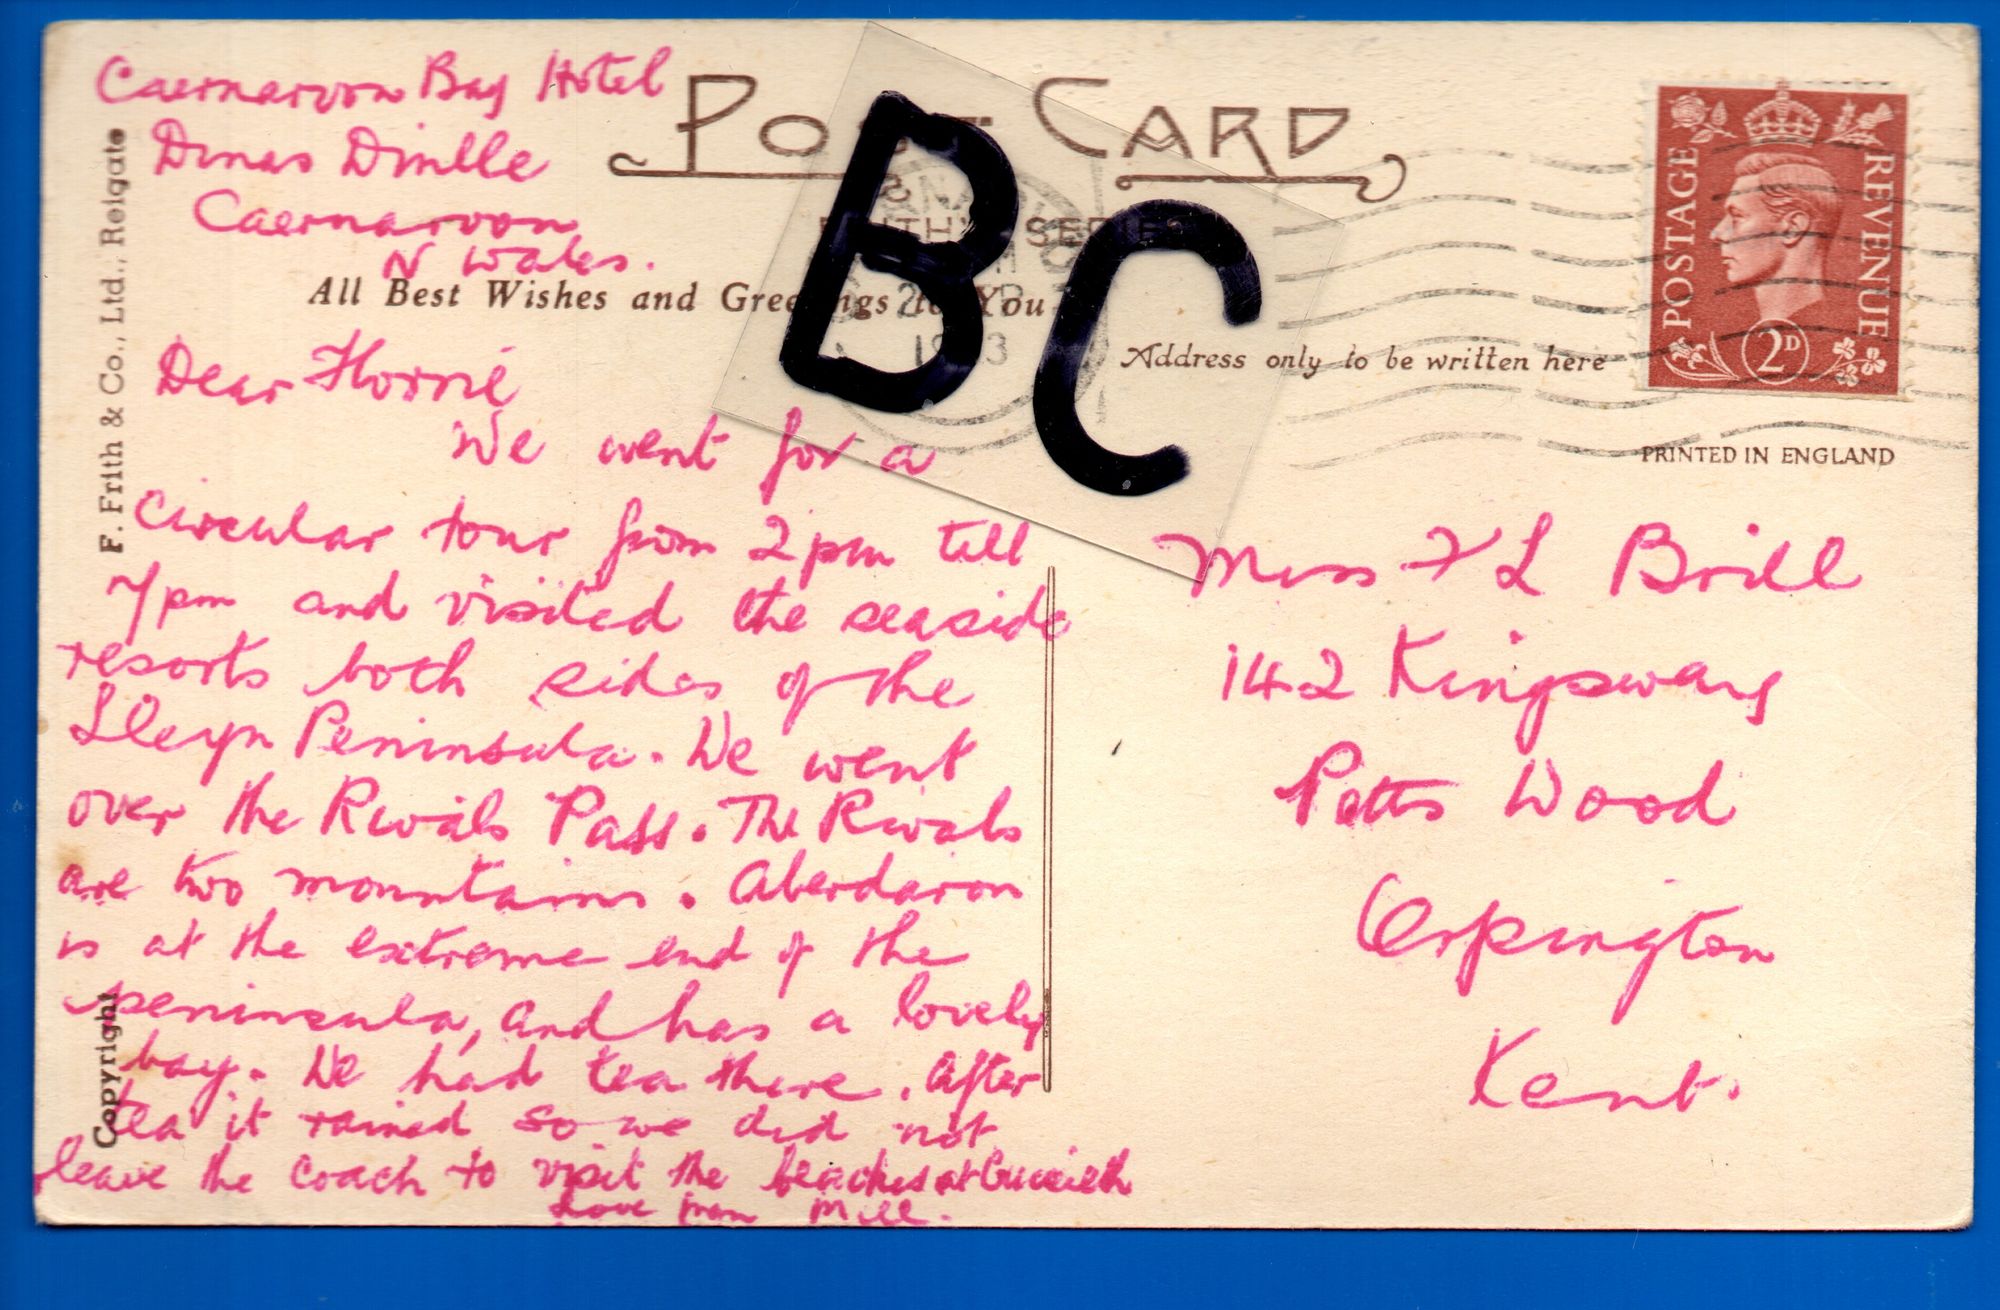 Caernarvon Bay Hotel
Dinas Dinlle
Caernarvon
N Wales.
POST CARD
FRITH'S SERIES
All Best Wishes and Greetings to You
BC
Dear Florrie
We went for a
circular tour from 2pm till
7pm and visited the seaside
resorts both sides of the
Lleyn Peninsula. We went
over the Rivals Pass. The Rivals
are two mountains. Aberdaron
is at the extreme end of the
peninsula, and has a lovely
bay. We had tea there. After
tea it rained so we did not
leave the coach to visit the beaches at Criccieth
Love from Mill.
F. Frith & Co., Ltd., Reigate
Copyright
Address only to be written here
POSTAGE
REVENUE
2D
PRINTED IN ENGLAND
Miss F L Brill
142 Kingsway
Petts Wood
Orpington
Kent.